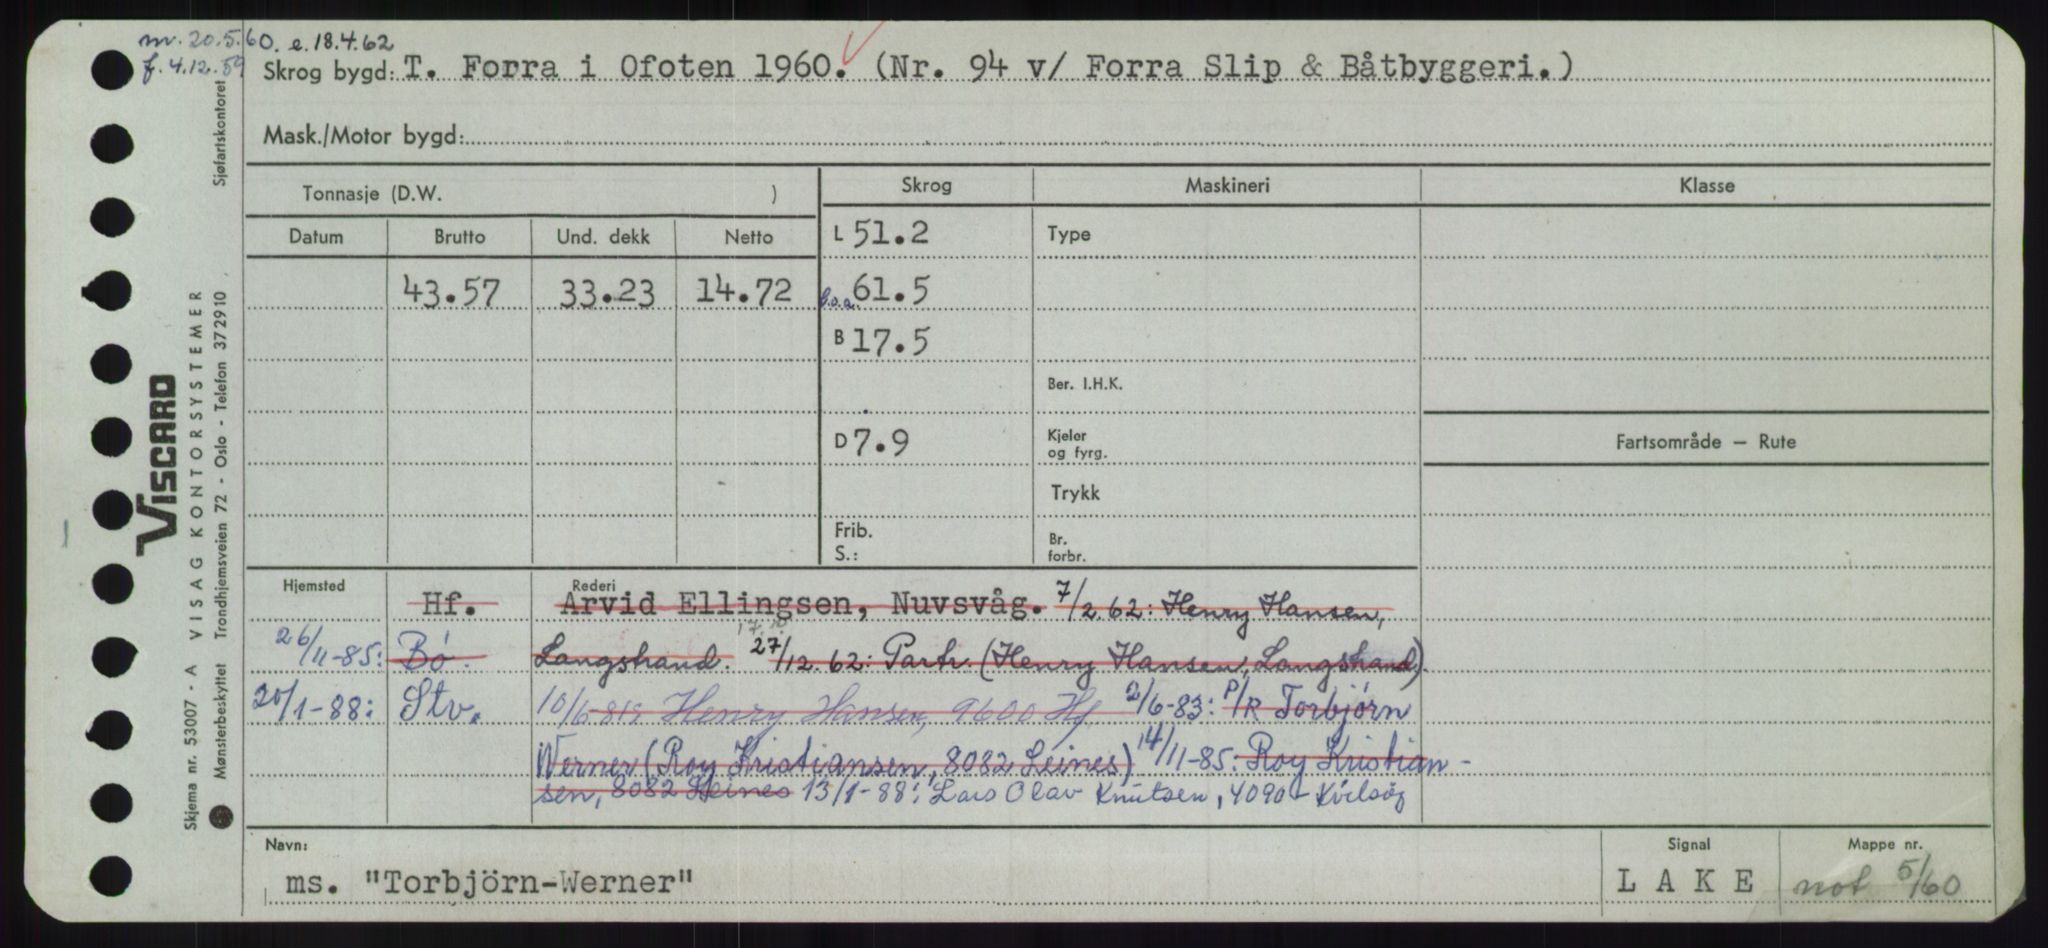 m. 20.5.60. e. 18.4.62
f. 4.12.59
Skrog bygd: T. Forra i Ofoten 1960. (Nr. 94 v/ Forra Slip & Båtbyggeri.)
Mask./Motor bygd:
Tonnasje (D.W. )
Skrog
Maskineri
Klasse
Datum
Brutto
Und. dekk
Netto
L 51.2
Type
43.57
33.23
14.72
l.o.a. 61.5
B 17.5
Ber. I.H.K.
D 7.9
Kjeler
og fyrg.
Fartsområde – Rute
Trykk
Frib.
S.:
Br.
forbr.
Hjemsted
Rederi
Hf.
Arvid Ellingsen, Nuvsvåg. 7/2.62: Henry Hansen,
26/11-85: Bö.
Langstrand. 27/12.62: Partr. (Henry Hansen, Langstrand).
20/1-88: Stv.
10/6-81: Henry Hansen, 9600 Hf 2/6-83: P/R Torbjørn
Werner (Roy Kristiansen, 8082 Leines) 14/11-85: Roy Kristian-
sen, 8082 Leines 13/1-88: Lars Olav Knutsen, 4090
Navn:
ms. "Torbjörn-Werner"
Signal
LAKE
Mappe nr.
not 5/60
VISCARD
Skjema nr. 53007 - A VISAG KONTORSYSTEMER
Mønsterbeskyttet Trondhjemsveien 72 - Oslo - Telefon 372910
Sjøfartskontoret